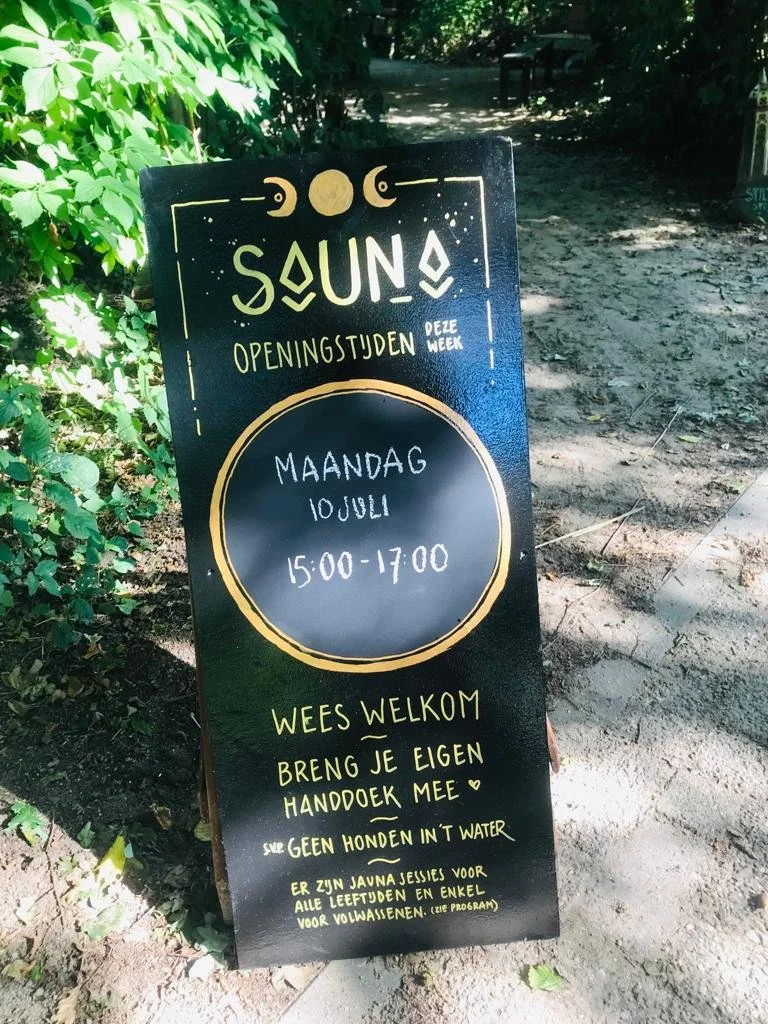 SAUNA
OPENINGSTIJDEN DEZE WEEK
MAANDAG
10 JULI
15:00-17:00
WEES WELKOM
BRENG JE EIGEN
HANDDOEK MEE ♡
S.V.P. GEEN HONDEN IN'T WATER
ER ZIJN SAUNA SESSIES VOOR
ALLE LEEFTIJDEN EN ENKEL
VOOR VOLWASSENEN. (ZIE PROGRAM)